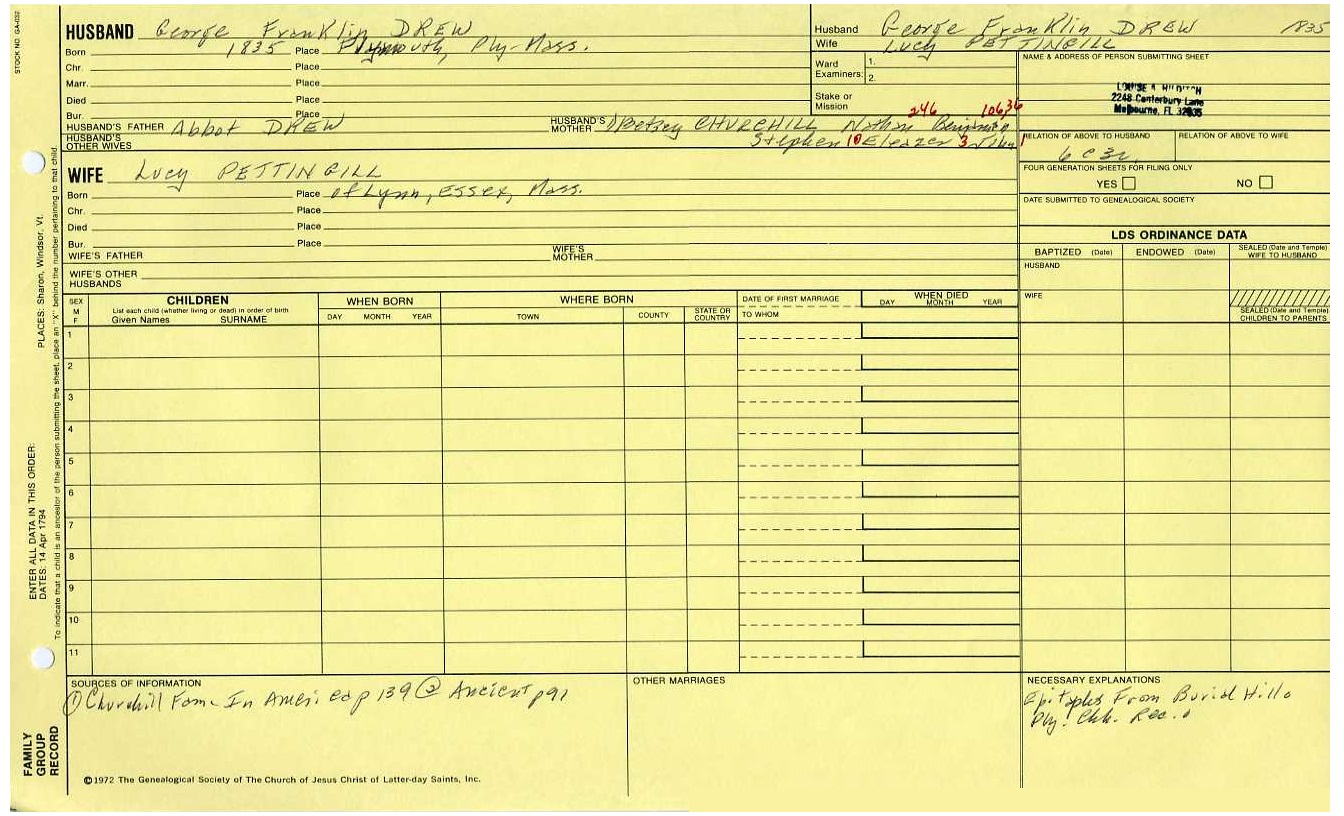 STOCK NO. GA-032
HUSBAND George Franklin DREW
Born 1835 Place Plymouth, Ply-Mass.
Chr. Place
Marr. Place
Died Place
Bur. Place
HUSBAND'S FATHER Abbot DREW HUSBAND'S MOTHER Betsey CHURCHILL Nathan Benjamin
HUSBAND'S OTHER WIVES Stephen 10 Eleazer 3 John 1
246 10636
Husband George Franklin DREW 1835
Wife Lucy PETTINGILL
Ward Examiners: 1.
2.
Stake or Mission
NAME & ADDRESS OF PERSON SUBMITTING SHEET
2248 Canterbury Lane
Melbourne, FL 32935
RELATION OF ABOVE TO HUSBAND RELATION OF ABOVE TO WIFE
6 C 3r
FOUR GENERATION SHEETS FOR FILING ONLY
YES NO
DATE SUBMITTED TO GENEALOGICAL SOCIETY
WIFE Lucy PETTINGILL
Born Place of Lynn, Essex, Mass.
Chr. Place
Died Place
Bur. Place
WIFE'S FATHER WIFE'S MOTHER
WIFE'S OTHER HUSBANDS
LDS ORDINANCE DATA
BAPTIZED (Date) ENDOWED (Date) SEALED (Date and Temple) WIFE TO HUSBAND
HUSBAND
WIFE
SEALED (Date and Temple) CHILDREN TO PARENTS
SEX M F
CHILDREN
List each child (whether living or dead) in order of birth
Given Names SURNAME
WHEN BORN
DAY MONTH YEAR
WHERE BORN
TOWN COUNTY STATE OR COUNTRY
DATE OF FIRST MARRIAGE
TO WHOM
WHEN DIED
DAY MONTH YEAR
1
2
3
4
5
6
7
8
9
10
11
SOURCES OF INFORMATION
① Churchill Fam- In America p 139 ② Ancient p91
OTHER MARRIAGES
NECESSARY EXPLANATIONS
Epitaphs From Burial Hill
Ply. Chh. Rec.
©1972 The Genealogical Society of The Church of Jesus Christ of Latter-day Saints, Inc.
FAMILY GROUP RECORD
ENTER ALL DATA IN THIS ORDER:
DATES: 14 Apr 1794 PLACES: Sharon, Windsor, Vt.
To indicate that a child is an ancestor of the person submitting the sheet, place an "X" behind the number pertaining to that child.